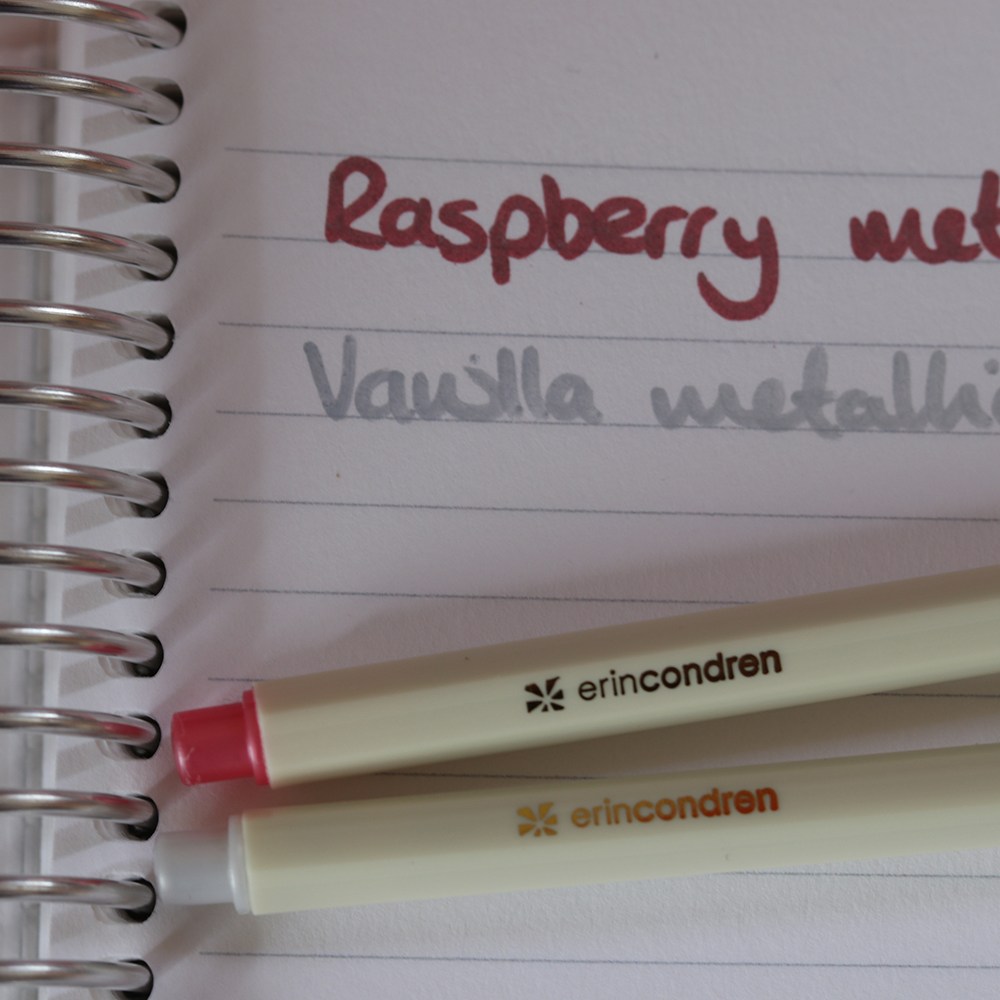 Raspberry met
Vanilla metalli
erincondren
erincondren